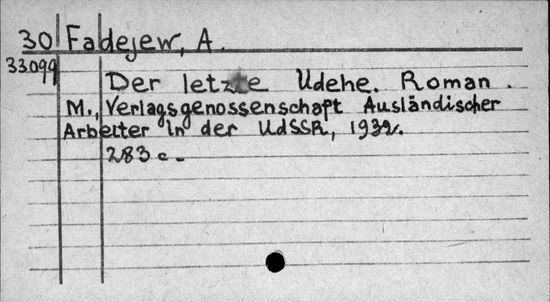 30 Fadejew, A.
33.099
Der letzte Udehe. Roman.
M., Verlagsgenossenschaft Ausländischer
Arbeiter in der UdSSR, 1932.
283 c.